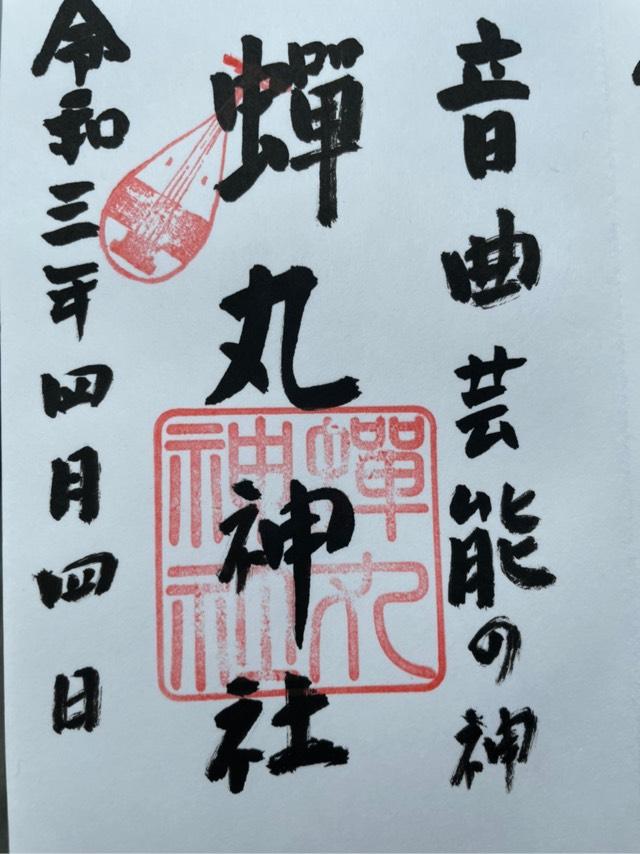 音曲芸能の神
蟬丸神社
蟬丸神社
令和三年四月四日